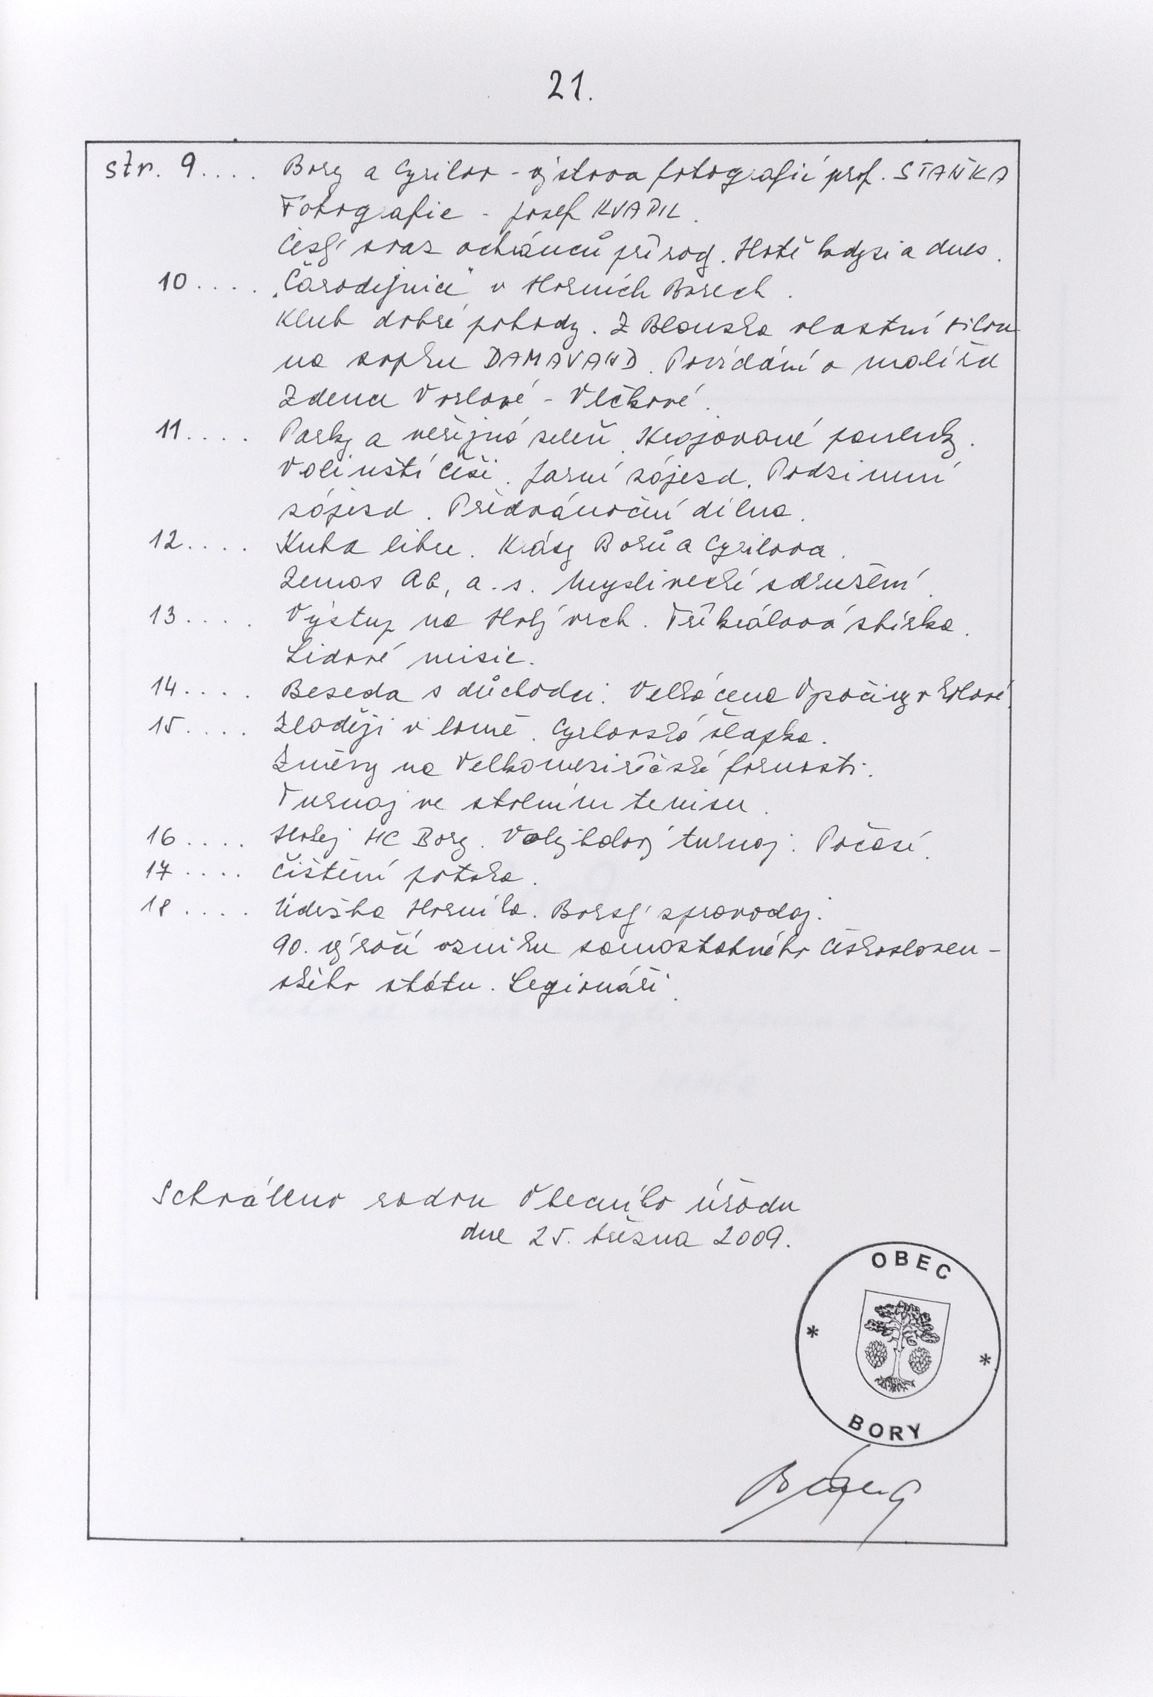 21.
str. 9.... Bory a Cyrilov - výstava fotografií prof. STAŇKA
Fotografie - Josef KVAPIL.
Český svaz ochránců přírody. Hotě kdysi a dnes.
10.... „Čarodějnice" v Horních Borech.
Klub dobré pohody. Z Blanska vlastní silou
na sopku DAMAVAND. Povídání o malířce
Zdence Vorlové - Vlčkové.
11.... Parky a veřejná zeleň. Krojované panenky.
Volinští Češi. Jarní zájezd. Podzimní
zájezd. Předvánoční dílna.
12.... Kuba libre. Krásy Borů a Cyrilova.
Zemas AG, a.s. Myslivecké sdružení.
13.... Výstup na Holý vrch. Tříkrálová sbírka.
Lidové misie.
14.... Beseda s důchodci. Velká cena Vysočiny v
15.... Zloději v lomě. Cyrilovská šlapka.
Změny na Velkomeziříčské farnosti.
Turnaj ve stolním tenisu.
16.... Hokej HC Bory. Volejbalový turnaj. Počasí.
17.... Čištění potoka.
18.... Údržba Horníka. Borský zpravodaj.
90. výročí vzniku samostatného Českosloven-
ského státu. Legionáři.
Schváleno radou Obecního úřadu
dne 25. března 2009.
OBEC
* *
BORY